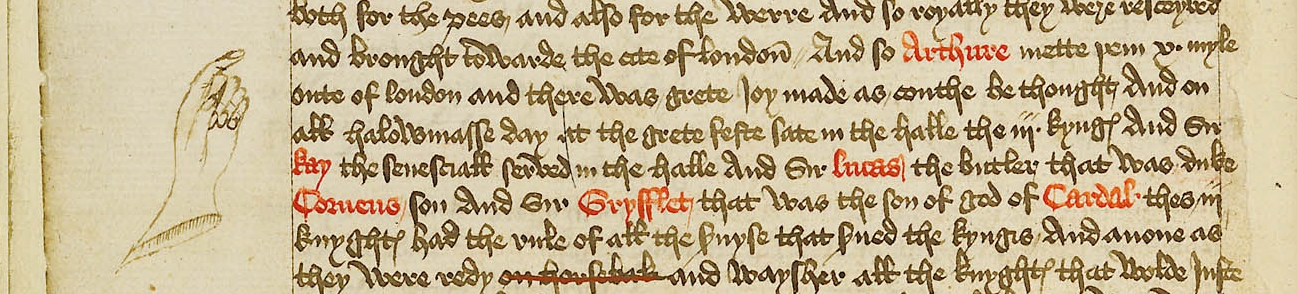 both for the pees and also for the Werre And so royally they were resceyved
and brought towarde the cite of london And so Arthure mette þem x. myle
oute of london and there was grete Joy made as couthe be thought And on
all halowmasse day at the grete feste sate in the halle the iij. kyngꝭ And Sir
kay the senesciall served in the halle And Sir lucas the butler that was duke
Corneus son And Sir Grifflet that was the son of god of Cardal thes iij
knyghtꝭ had the rule of all the ſuyse that ſued the kyngis And anone as
they were redy on horsebak and Waysher all the knyghtꝭ that Wolde Juste